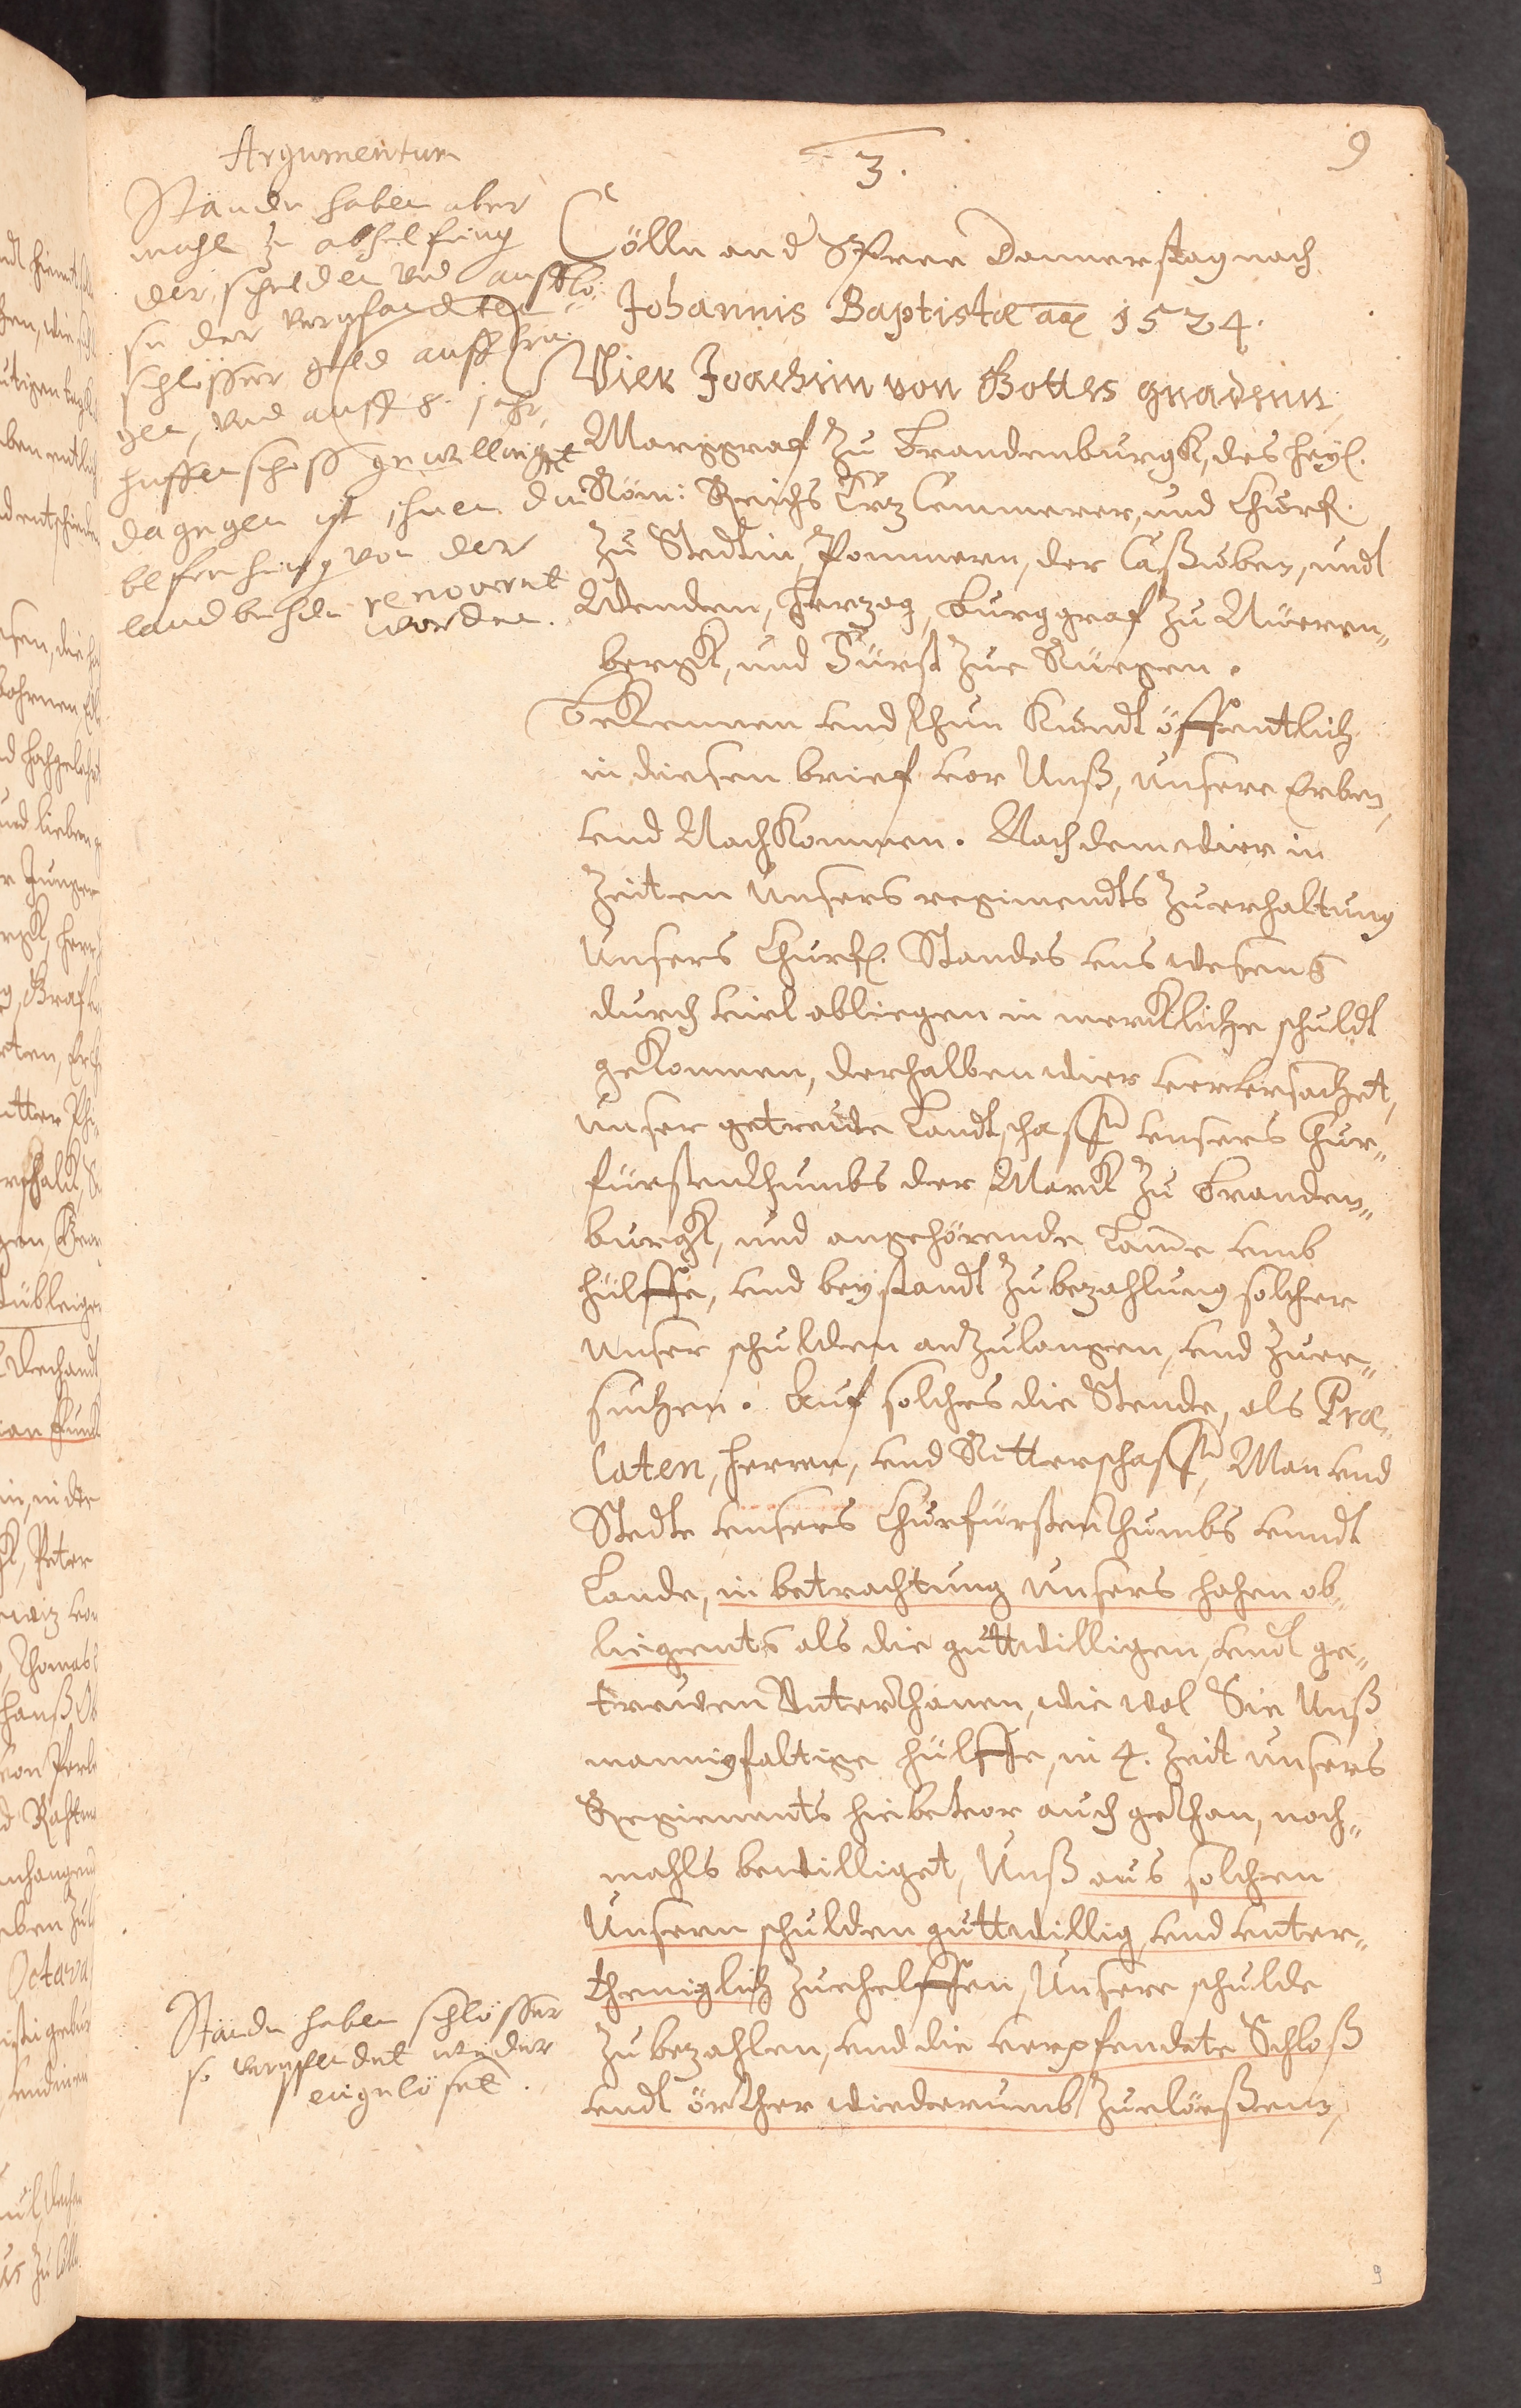 9
3.
Argumentum
Stände haben aber
mahl zu abhelfung
der schulden vnd auslö-
se der verpfandten
schlösser geld aufbrin-
gen, vnd auff 8. jahr
huffenschoß gewilliget
dagegen ist ihnen die
befreihung von der
landbehde renovert
worden.
Cölln an d Spree Donnerstag nach
Johannis Baptistæ aõ 1524.
Wier Joachim von Gottes gnadenn
Marggraf zu Brandenburgk, des heyl.
Röm: Reichs Ertz Cemmerer, und Churf.
zu Stedtin, Pommern, der Caßuben, undt
Wenden, Herzog, Burggraf zu Nüeren„
bergk, und Fürst zue Rüegen.
Bekennen vnd thun kundt öffentlich
in diesen brief vor Unß, unsere Erben,
vnd Nachkommen. Nach dem wier in
Zeiten unsers regimendts zuerhaltung
unsers Churfl. Standes vns wesens
durch viel obliegen in merckliche schuldt
gekommen, derhalben wier verversachet,
unser getreüde Landtschafft vnsers Chur„
fürstenthumbs der Marck zu Branden„
burgk, und angehörende Lande vmb
hülffe, vnd beystandt zubezahlung solcher
unser schulden anzulangen, vnd zuer„
suchen. Auf solches die Stende, als Præ„
laten, Herren, vnd Ritterschafft, Man vnd
Stedte vnsers Churfürstenthumbs vnndt
Lande, in betrachtung unsers hohen ob„
liegents als die guttwilligen, vndt ge„
treuen Unterthanen, wie wol Sie Unß
mannigfaltige hülffe, in 4. Zeit unsers
Regiements hiebevor auch gethan, noch„
mahls bewilliget, Unß aus solchen
Unsern schulden guttwillig vnd vnter„
theniglich zuehelffen, Unsere schulde
zu bezahlen, vnd die verpfendete Schloß
vndt örther wiederumb zuelöeßenn,
Stände haben schlösser
so verpfendet wieder
eingelöset.
9